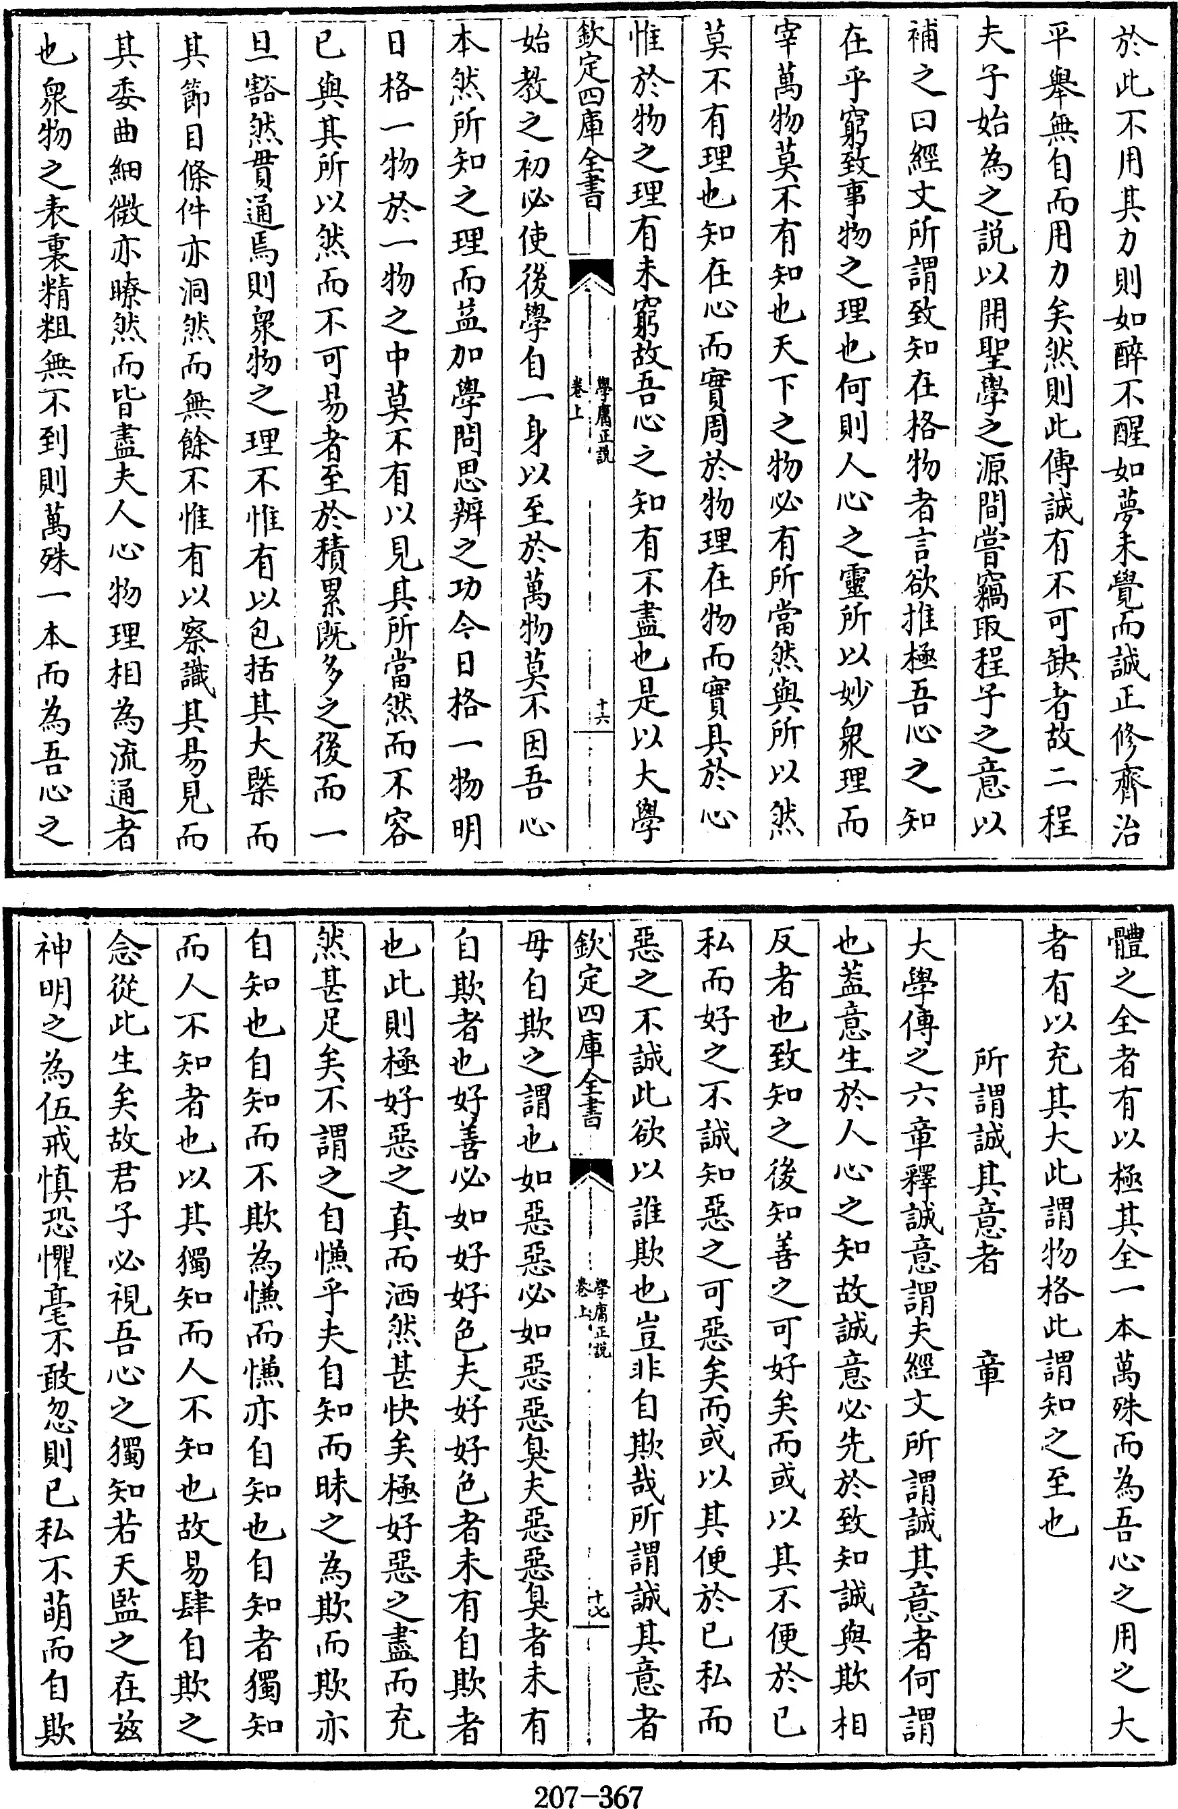 於此不用其力則如醉不醒如夢未覺而誠正修齊治
平舉無自而用力矣然則此傳誠有不可缺者故二程
夫子始為之説以開聖學之源間嘗竊取程子之意以
補之曰經文所謂致知在格物者言欲推極吾心之知
在乎窮致事物之理也何則人心之靈所以妙衆理而
宰萬物莫不有知也天下之物必有所當然與所以然
莫不有理也知在心而實周於物理在物而實具於心
惟於物之理有未窮故吾心之知有不盡也是以大學
欽定四庫全書 學庸正説 卷上 十六
始教之初必使後學自一身以至於萬物莫不因吾心
本然所知之理而益加學問思辨之功今日格一物明
日格一物於一物之中莫不有以見其所當然而不容
已與其所以然而不可易者至於積累既多之後而一
旦豁然貫通焉則衆物之理不惟有以包括其大槩而
其節目條件亦洞然而無餘不惟有以察識其易見而
其委曲細微亦瞭然而皆盡夫人心物理相為流通者
也衆物之表裏精粗無不到則萬殊一本而為吾心之
體之全者有以極其全一本萬殊而為吾心之用之大
者有以充其大此謂物格此謂知之至也
所謂誠其意者 章
大學傳之六章釋誠意謂夫經文所謂誠其意者何謂
也蓋意生於人心之知故誠意必先於致知誠與欺相
反者也致知之後知善之可好矣而或以其不便於已
私而好之不誠知惡之可惡矣而或以其便於已私而
惡之不誠此欲以誰欺也豈非自欺哉所謂誠其意者
欽定四庫全書 學庸正説 卷上 十七
毋自欺之謂也如惡惡必如惡惡臭夫惡惡臭者未有
自欺者也好善必如好好色夫好好色者未有自欺者
也此則極好惡之真而洒然甚快矣極好惡之盡而充
然甚足矣不謂之自慊乎夫自知而昧之為欺而欺亦
自知也自知而不欺為慊而慊亦自知也自知者獨知
而人不知者也以其獨知而人不知也故易肆自欺之
念從此生矣故君子必視吾心之獨知若天監之在兹
神明之為伍戒慎恐懼毫不敢忽則已私不萌而自欺
207-367